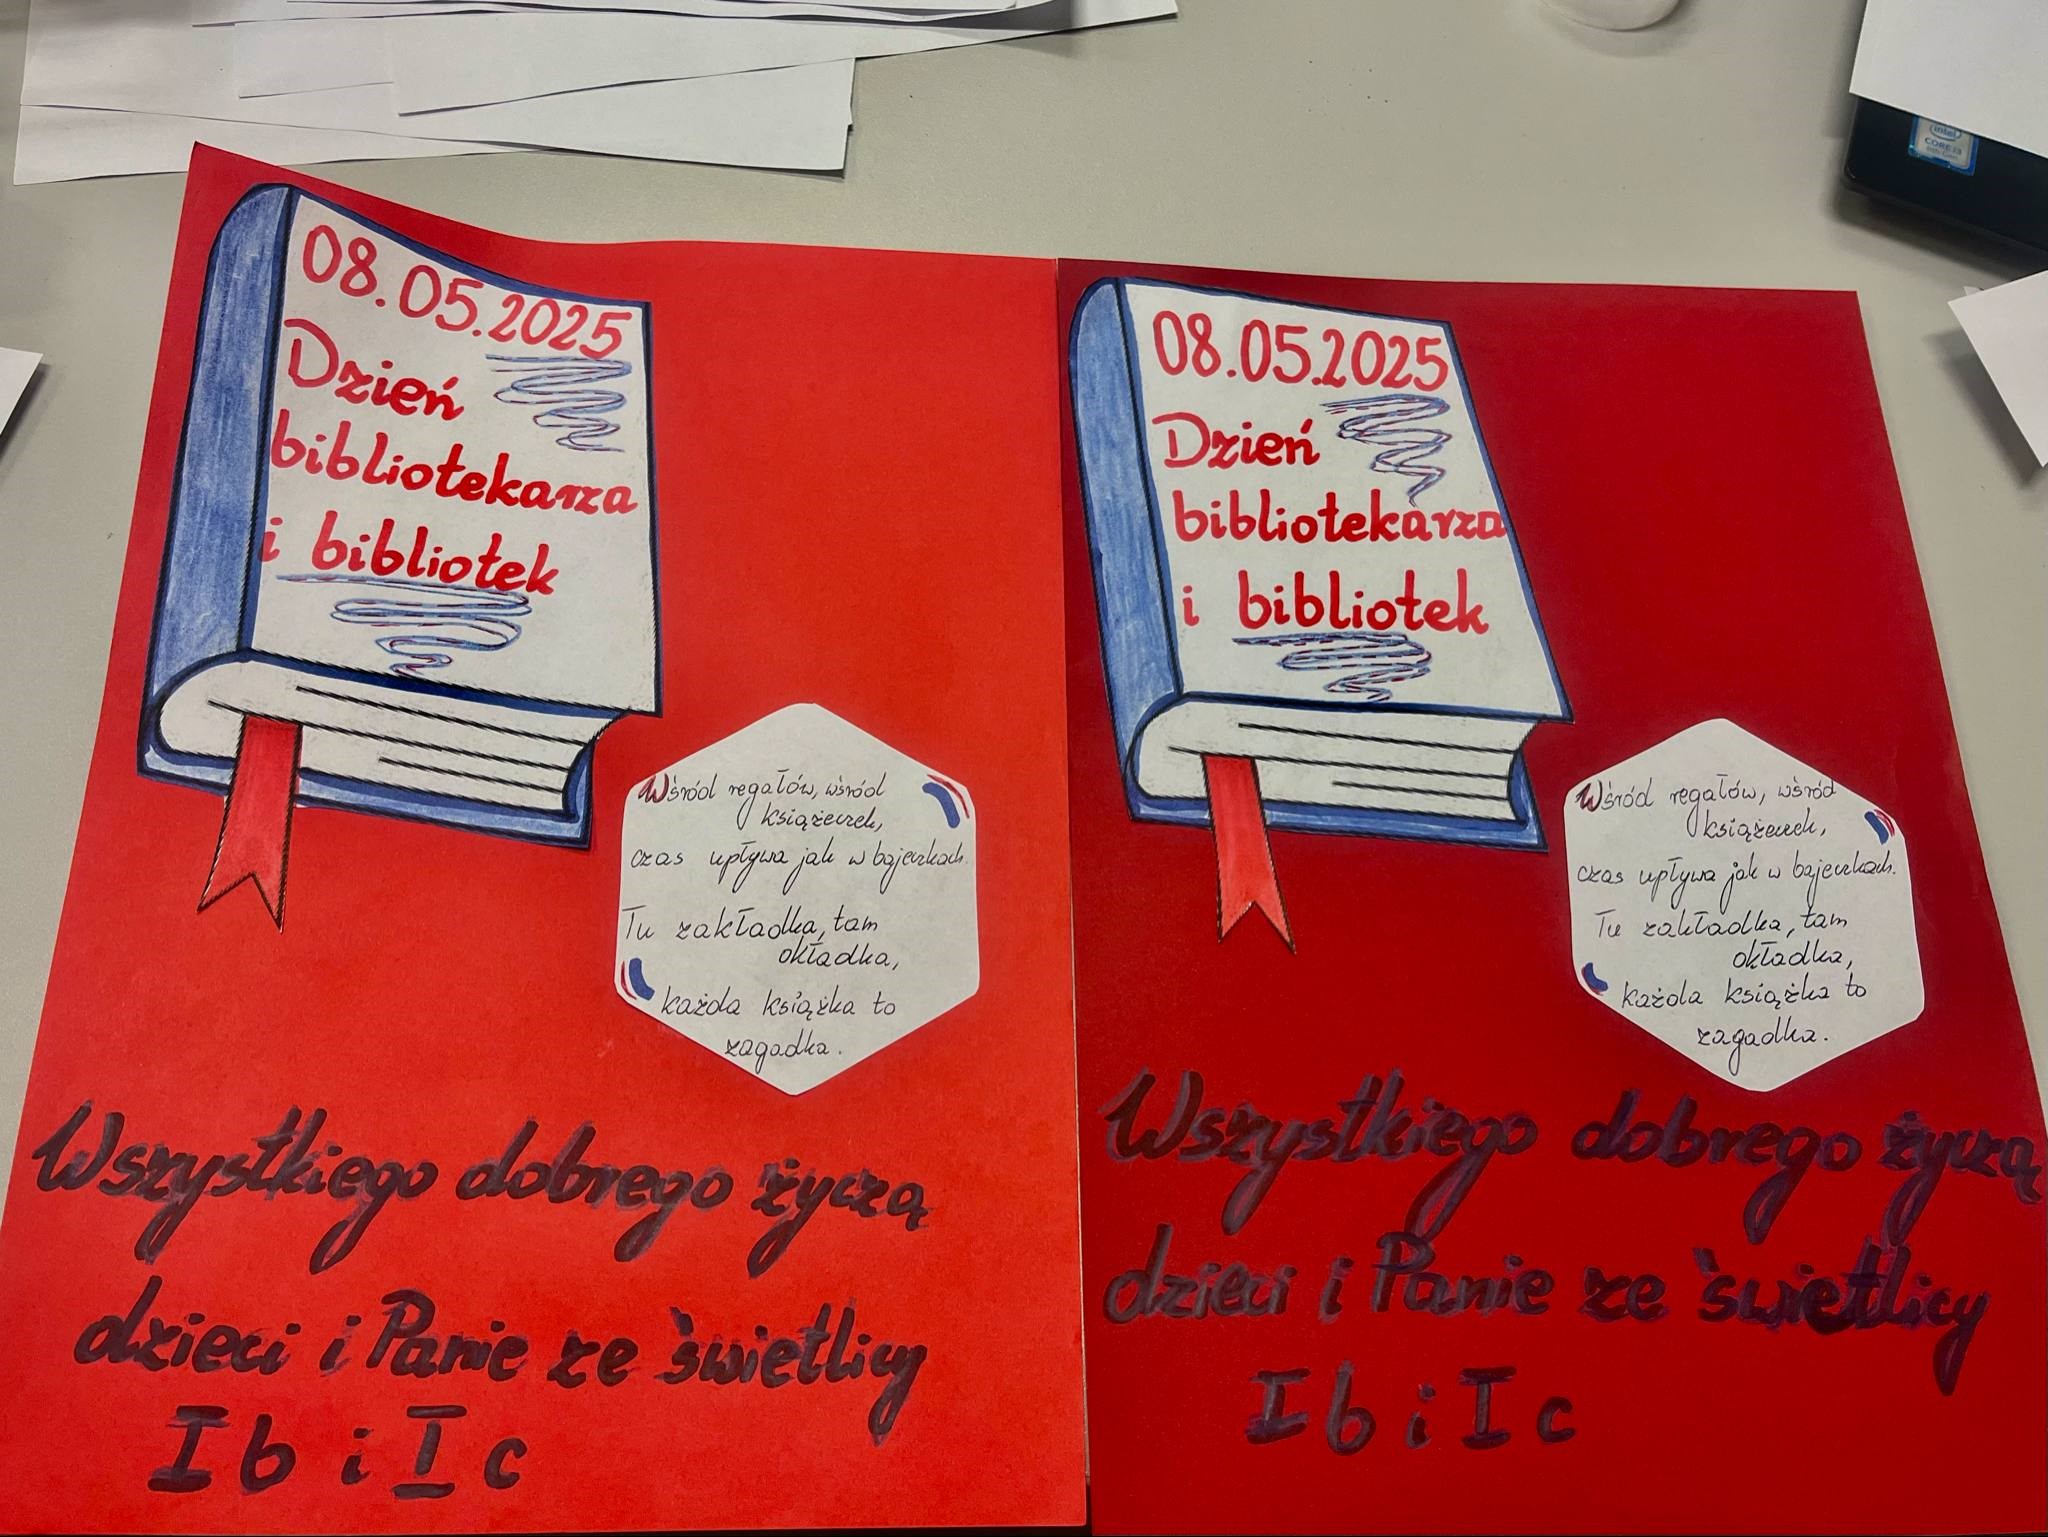 08.05.2025
Dzień
bibliotekarza
i bibliotek
Wśród regałów, wśród
książeczek,
czas upływa jak w bajeczkach.
Tu zakładka, tam
okładka,
każda książka to
zagadka.
Wszystkiego dobrego życzą
dzieci i Panie ze świetlicy
I b i I c
08.05.2025
Dzień
bibliotekarza
i bibliotek
Wśród regałów, wśród
książeczek,
czas upływa jak w bajeczkach.
Tu zakładka, tam
okładka,
każda książka to
zagadka.
Wszystkiego dobrego życzą
dzieci i Panie ze świetlicy
I b i I c
intel
CORE i3
8th Gen